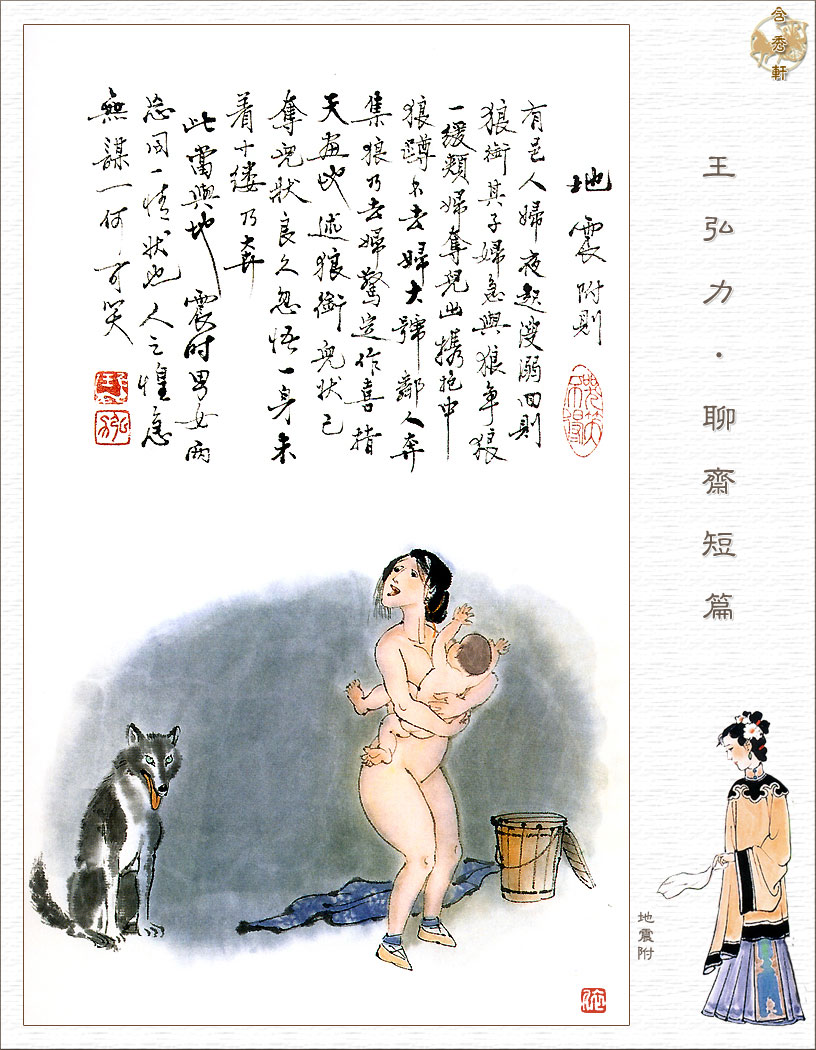 含秀軒
王弘力·聊齋短篇
地震附
地震附則
哭笑不得
有邑人婦夜起溲溺回則
狼銜其子婦急與狼爭狼
一緩頰婦奪兒出攜抱中
狼蹲不去婦大號鄰人奔
集狼乃去婦驚定作喜指
天畫地述狼銜兒狀己
奪兒狀良久忽悟一身未
着寸縷乃奔
此當與地震时男女两
忘同一情狀也人之惶急
無謀一何可笑